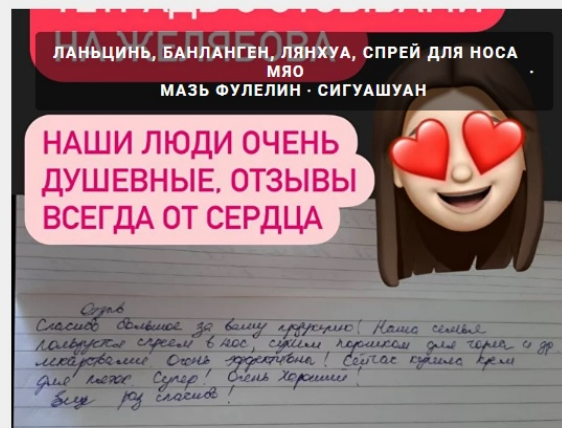 ТЕТРАДЬ С ОТЗЫВАМИ
НА ЖЕЛЯБОВА
ЛАНЬЦИНЬ, БАНЛАНГЕН, ЛЯНХУА, СПРЕЙ ДЛЯ НОСА
МЯО
МАЗЬ ФУЛЕЛИН · СИГУАШУАН
НАШИ ЛЮДИ ОЧЕНЬ
ДУШЕВНЫЕ, ОТЗЫВЫ
ВСЕГДА ОТ СЕРДЦА
Отзыв
Спасибо большое за вашу продукцию! Наша семья
пользуется спреем в нос, сухим порошком для горла и др.
лекарствами Очень эффективны! Сейчас купила крем
для Супер! Очень Хороший!
Ещё раз спасибо!